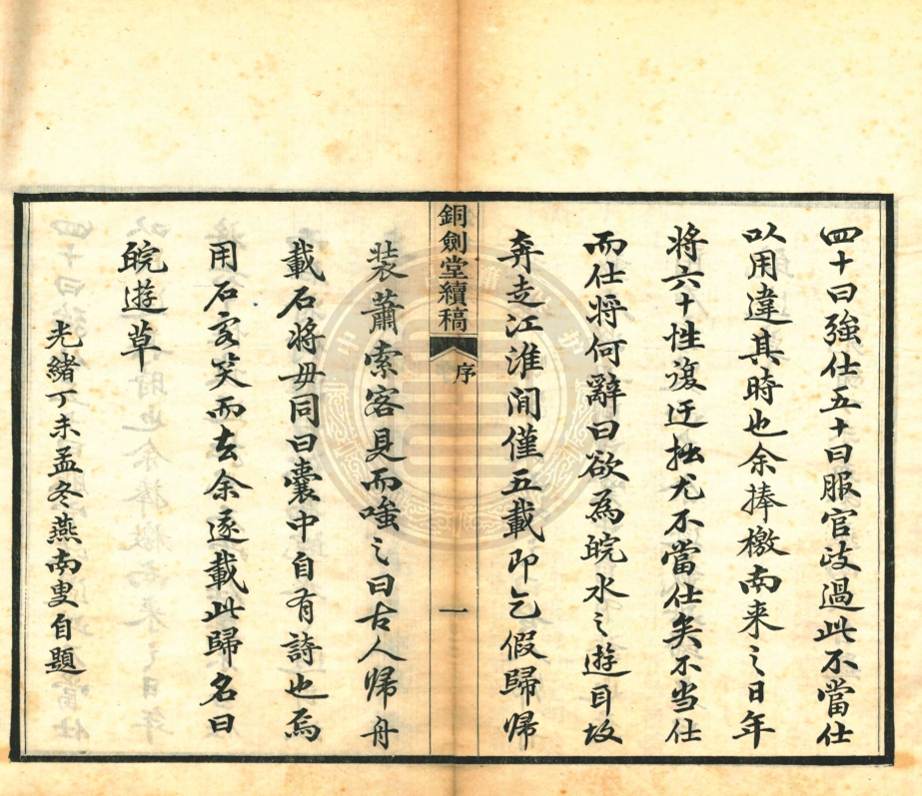 四十曰強仕五十曰服官政過此不當仕
以用違其時也余捧檄南来之日年
将六十性復迂拙尤不當仕矣不当仕
而仕将何辭曰欲為皖水之遊耳故
奔走江淮間僅五載即乞假歸帰
銅劍堂續稿
序
一
装蕭索客見而嗤之曰古人帰舟
載石将毋同曰囊中自有詩也焉
用石客笑而去余遂載此歸名曰
皖遊草
光緒丁未孟冬燕南叟自題